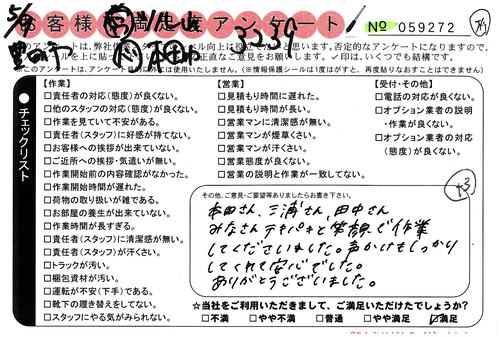 お客様満足度アンケート
№ 059272
5/8
3339
のアンケートは、弊社
向上に役立
と思います。否定的なアンケートになりますので、
ールを上に貼っ
正直なご意見をお願いします。✓印は、いくつでも結構です。
※このアンケートは、アンケート
外には使用いたしません。(※情報保護シールは1度はがすと、再度貼りなおすことはできません)
チェックリスト
【作業】
□責任者の対応(態度)が良くない。
□他のスタッフの対応(態度)が良くない。
□作業を見ていて不安がある。
□責任者(スタッフ)に好感が持てない。
□お客様への挨拶が出来ていない。
□ご近所への挨拶・気遣いが無い。
□作業開始前の内容確認がなかった。
□作業開始時間が遅れた。
□荷物の取り扱いが雑である。
□お部屋の養生が出来ていない。
□作業時間が長すぎる。
□責任者(スタッフ)に清潔感が無い。
□責任者(スタッフ)が汗くさい。
□トラックが汚い。
□梱包資材が汚い。
□運転が不安(下手)である。
□靴下の履き替えをしてない。
□スタッフにやる気がみられない。
【営業】
□見積もり時間に遅れた。
□見積もり時間が長い。
□営業マンに清潔感が無い。
□営業マンが煙草くさい。
□営業マンが汗くさい。
□営業態度が良くない。
□営業の説明と作業が一致してない。
【受付・その他】
□電話の対応が良くない。
□オプション業者の説明
・作業が良くない。
□オプション業者の対応
(態度)が良くない。
+3
その他、ご意見・ご要望等ありましたらお書き下さい。
本田さん、三浦さん、田中さん
みなさんテキパキと笑顔で作業
してくださいました。声かけもしっかり
してくれて安心でした。
ありがとうございました。
☆当社をご利用いただきまして、ご満足いただけたでしょうか?
□不満 □やや不満 □普通 □やや満足 ☑満足